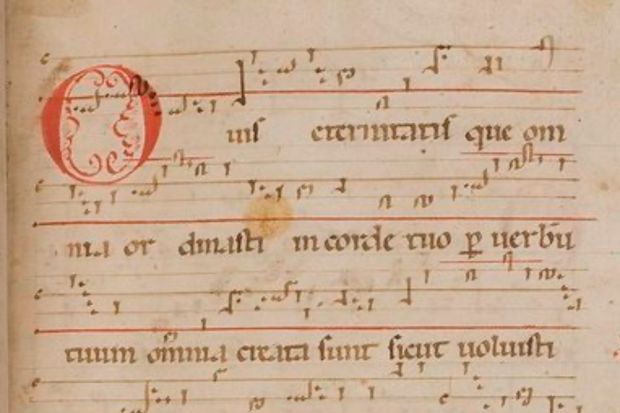 O uis eternitatis que om
nia or dinasti in corde tuo ꝑ uerbū
tuum omnia creata sunt sicut uoluisti